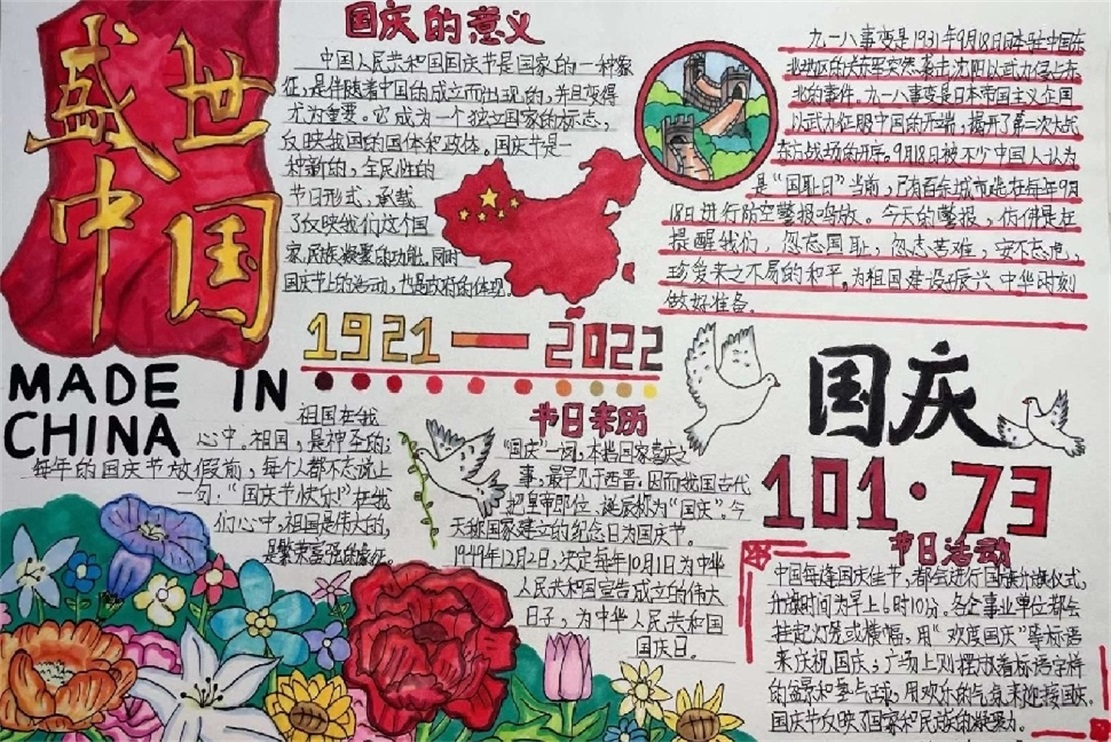 盛世
中国
国庆的意义
中国人民共和国国庆节是国家的一种象
征,是伴随着中国的成立而出现的,并且变得
尤为重要。它成为一个独立国家的标志,
反映我国的国体和政体。国庆节是一
种新的,全民性的
节日形式,承载
了反映我们这个国
家,民族凝聚的功能。同时
国庆节上的活动,也是政府的体现。
九一八事变是1931年9月18日日本驻中国东
北地区的关东军突然袭击沈阳以武力侵占东
北的事件。九一八事变是日本帝国主义企图
以武力征服中国的开端,揭开了第二次大战
东方战场的开序。9月18日被不少中国人认为
是“国耻日”当前,已有百余城市选在每年9月
18日进行防空警报鸣放。今天的警报,仿佛是在
提醒我们,忽忘国耻,忽忘苦难,安不忘危,
珍爱来之不易的和平。为祖国建设振兴中华时刻
做好准备。
1921—2022
MADE IN
CHINA
祖国在我
心中。祖国,是神圣的;
每年的国庆节放假前,每个人都不忘说上
一句:“国庆节快乐!”在我
们心中,祖国是伟大的,
是繁荣富强的象征。
节日来历
“国庆”一词,本指国家喜庆之
事,最早见于西晋。因而我国古代
把皇帝即位、诞辰称为“国庆”。今
天称国家建立的纪念日为国庆节。
1949年12月2日,决定每年10月1日为中华
人民共和国宣告成立的伟大
日子,为中华人民共和国
国庆日。
国庆
101·73
节日活动
中国每逢国庆佳节,都会进行国旗升旗仪式,
升旗时间为早上6时10分。各企事业单位都会
挂起灯笼或横幅,用“欢度国庆”等标语
来庆祝国庆;广场上则摆放着标语字样
的盆景和 气球,用欢乐的气氛来迎接国庆。
国庆节反映了国家和民族的凝聚力。